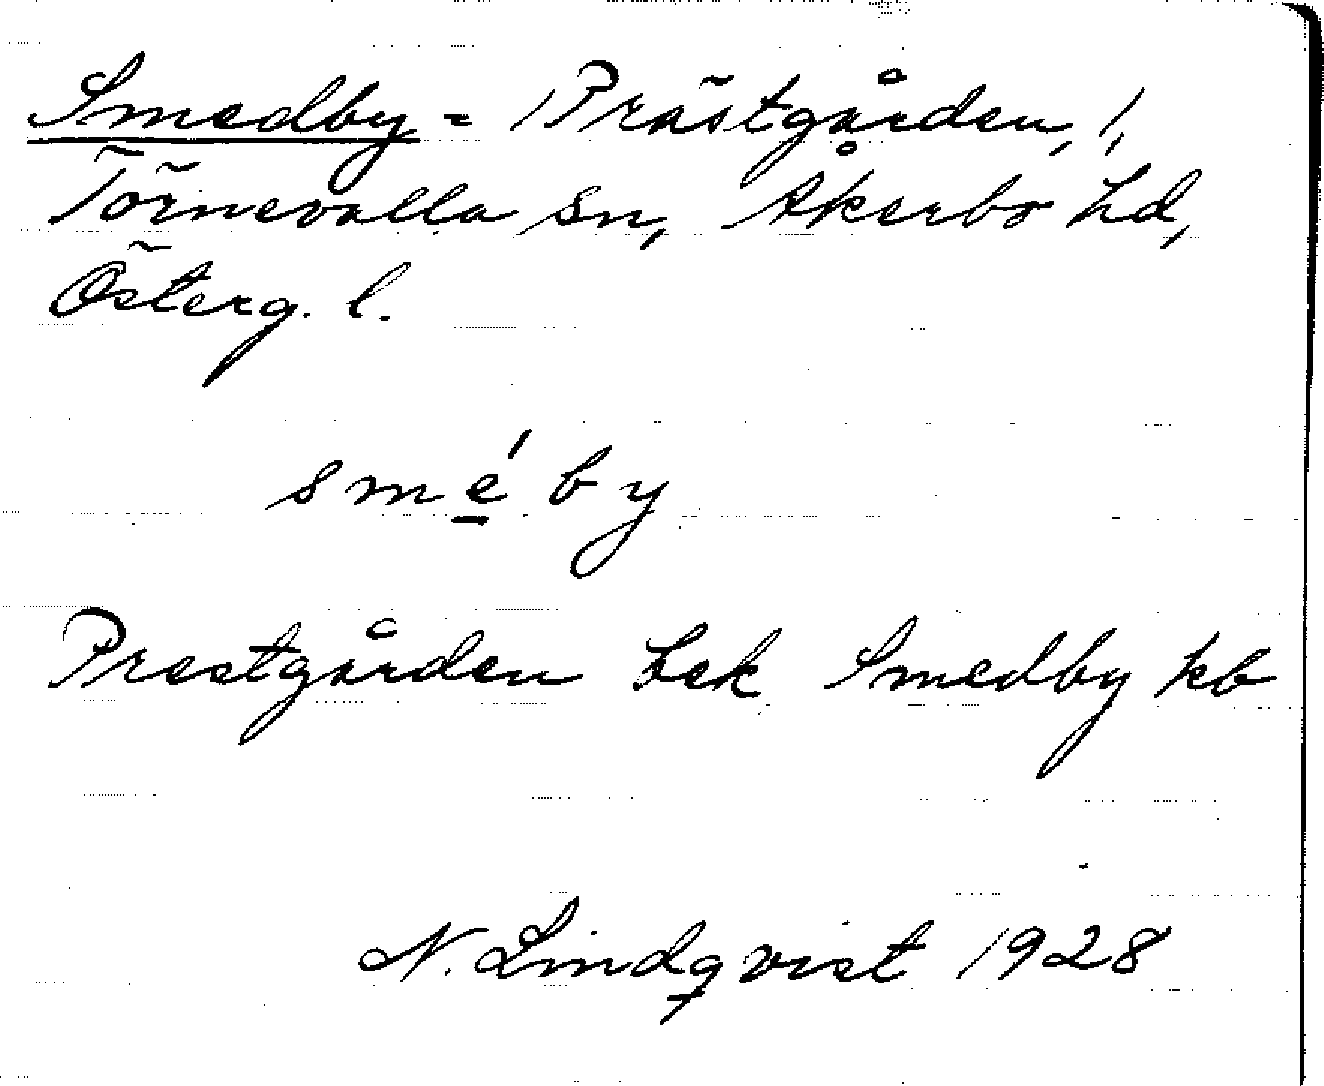 Smedby = Prästgården, 1,
Törnevalla sn, Åkerbo hd,
Österg. l.
sme̲´by
Prestgården bek Smedby kb
N. Lindqvist 1928